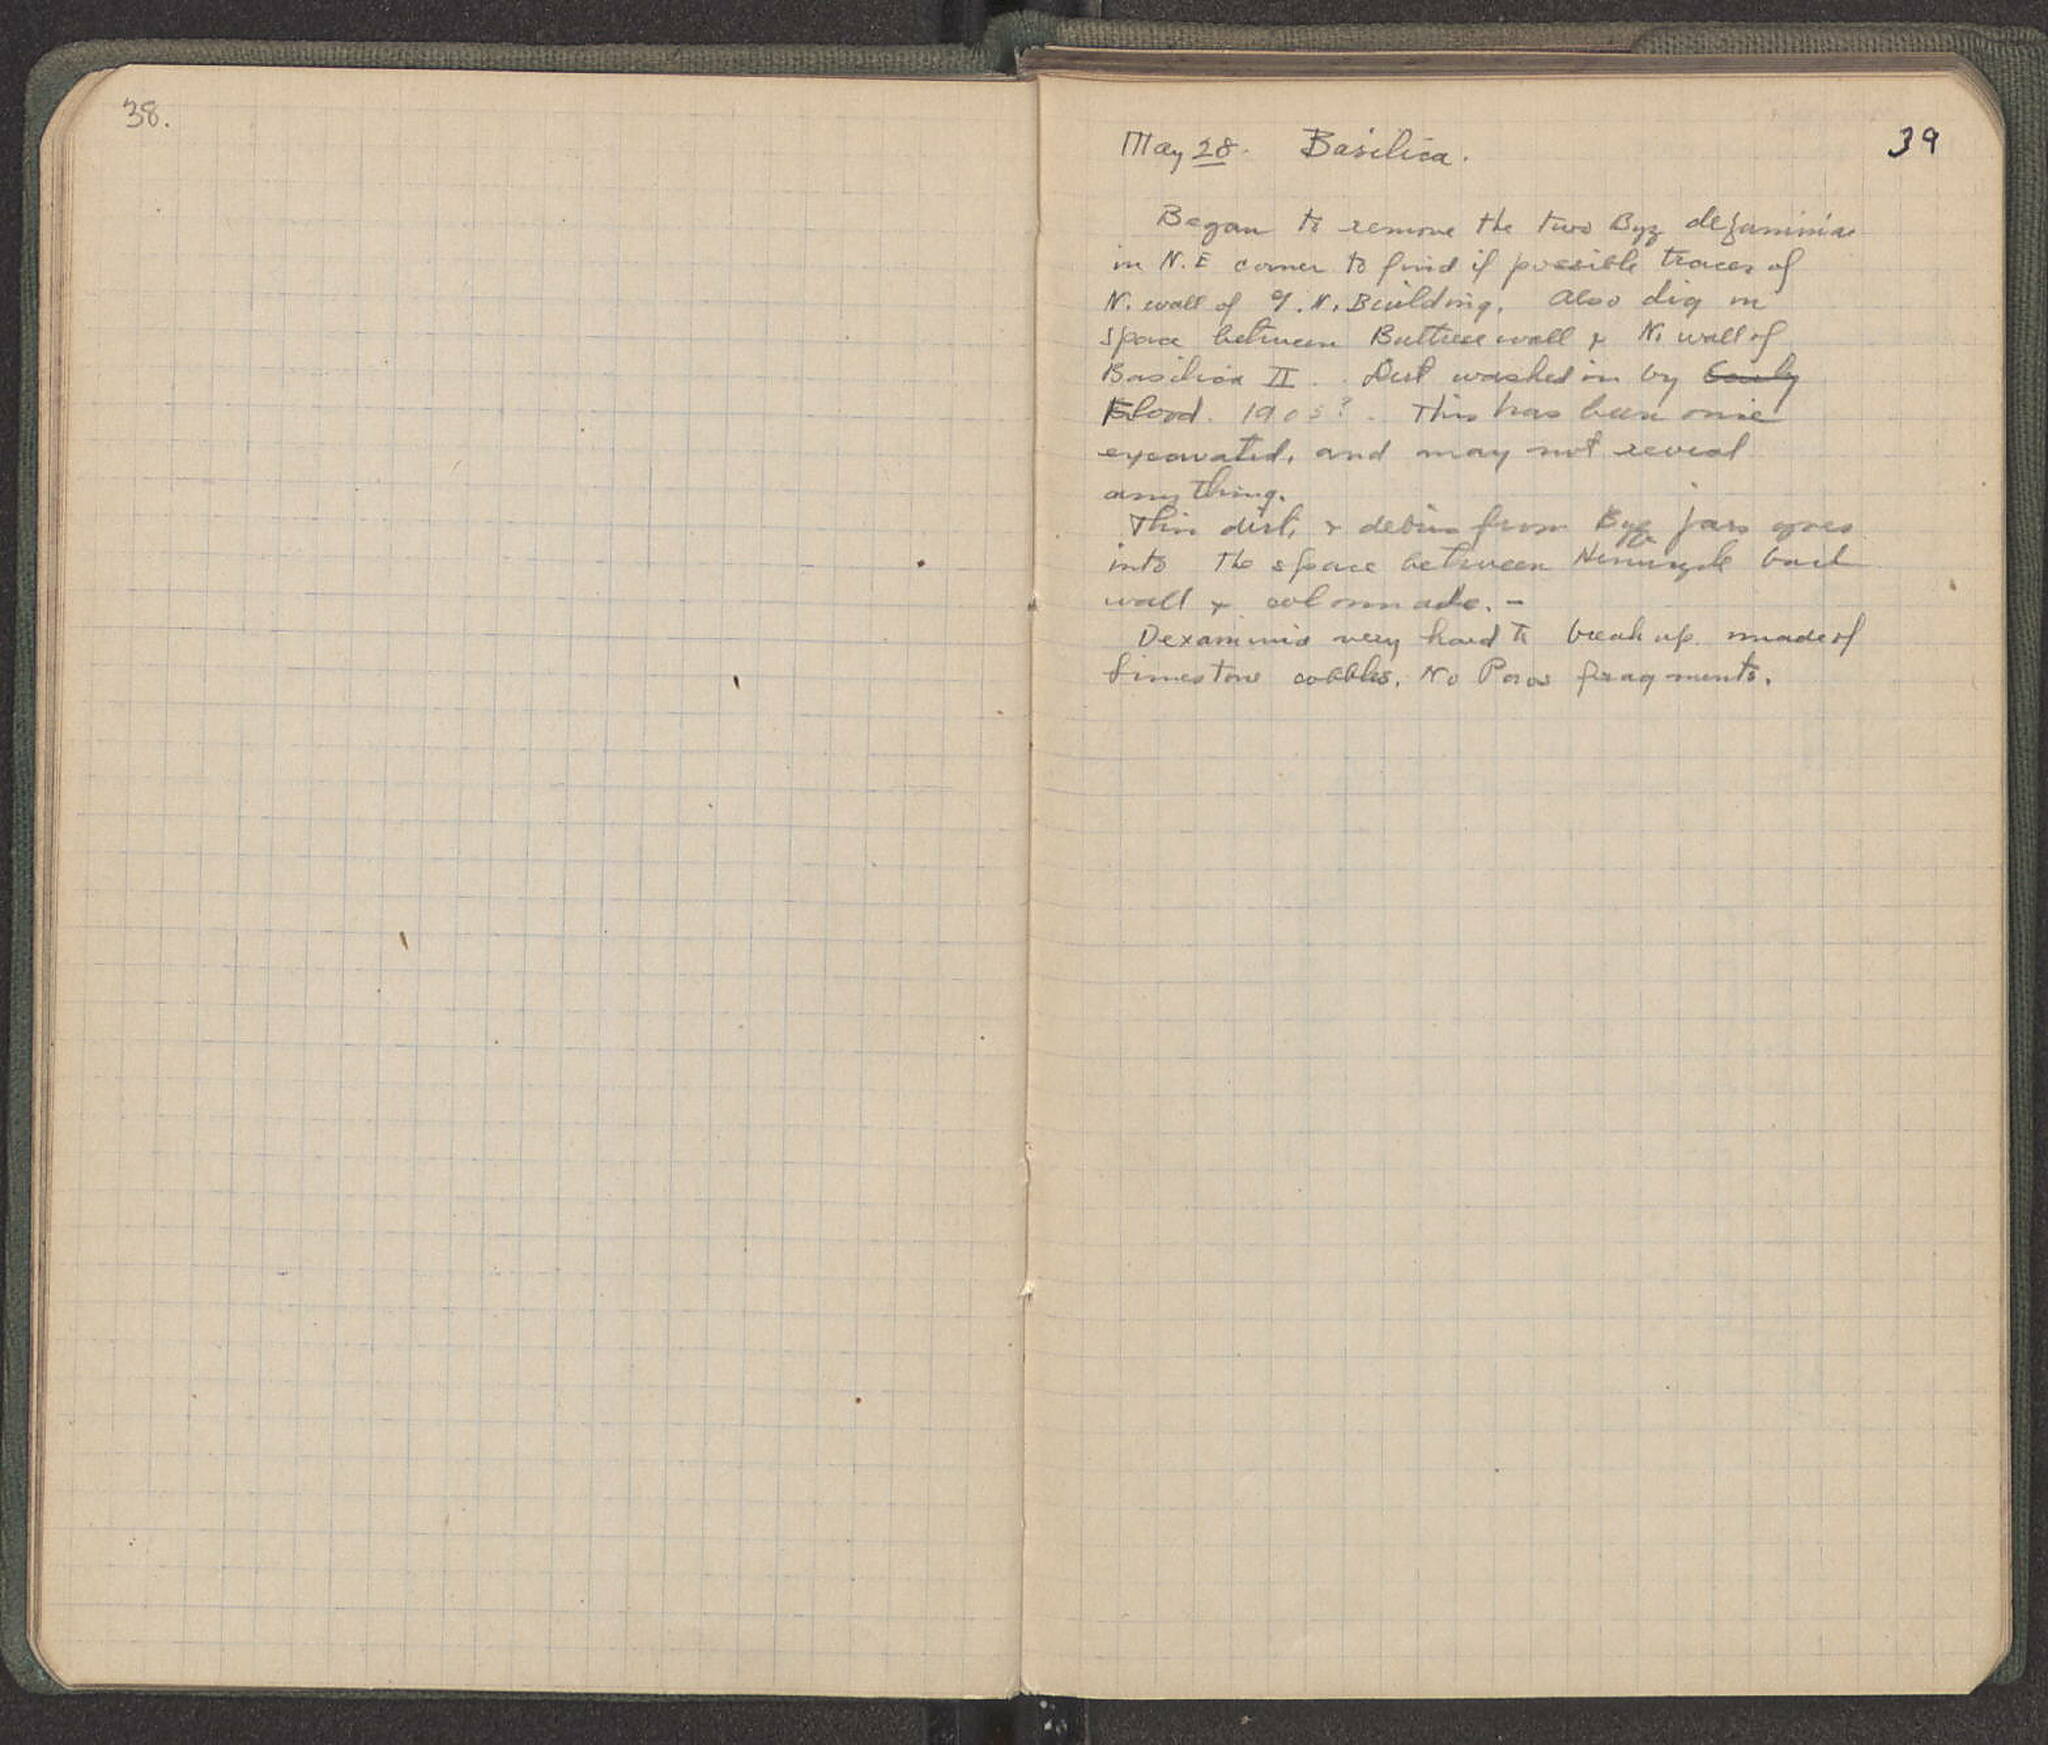 38.
May 28. Basilica. 39
Began to remove the two Byz dexaminias
in N.E corner to find if possible traces of
N. wall of N. Building. Also dig in
space between Buttress wall & N. wall of
Basilica II. Dirt washed in by Early
Flood. 1905?. This has been once
excavated, and may not reveal
anything.
This dirt, & debris from Byz jars goes
into the space between back
wall & colonnade. -
Dexaminia very hard to break up. made of
limestone cobbles. No Poros fragments.